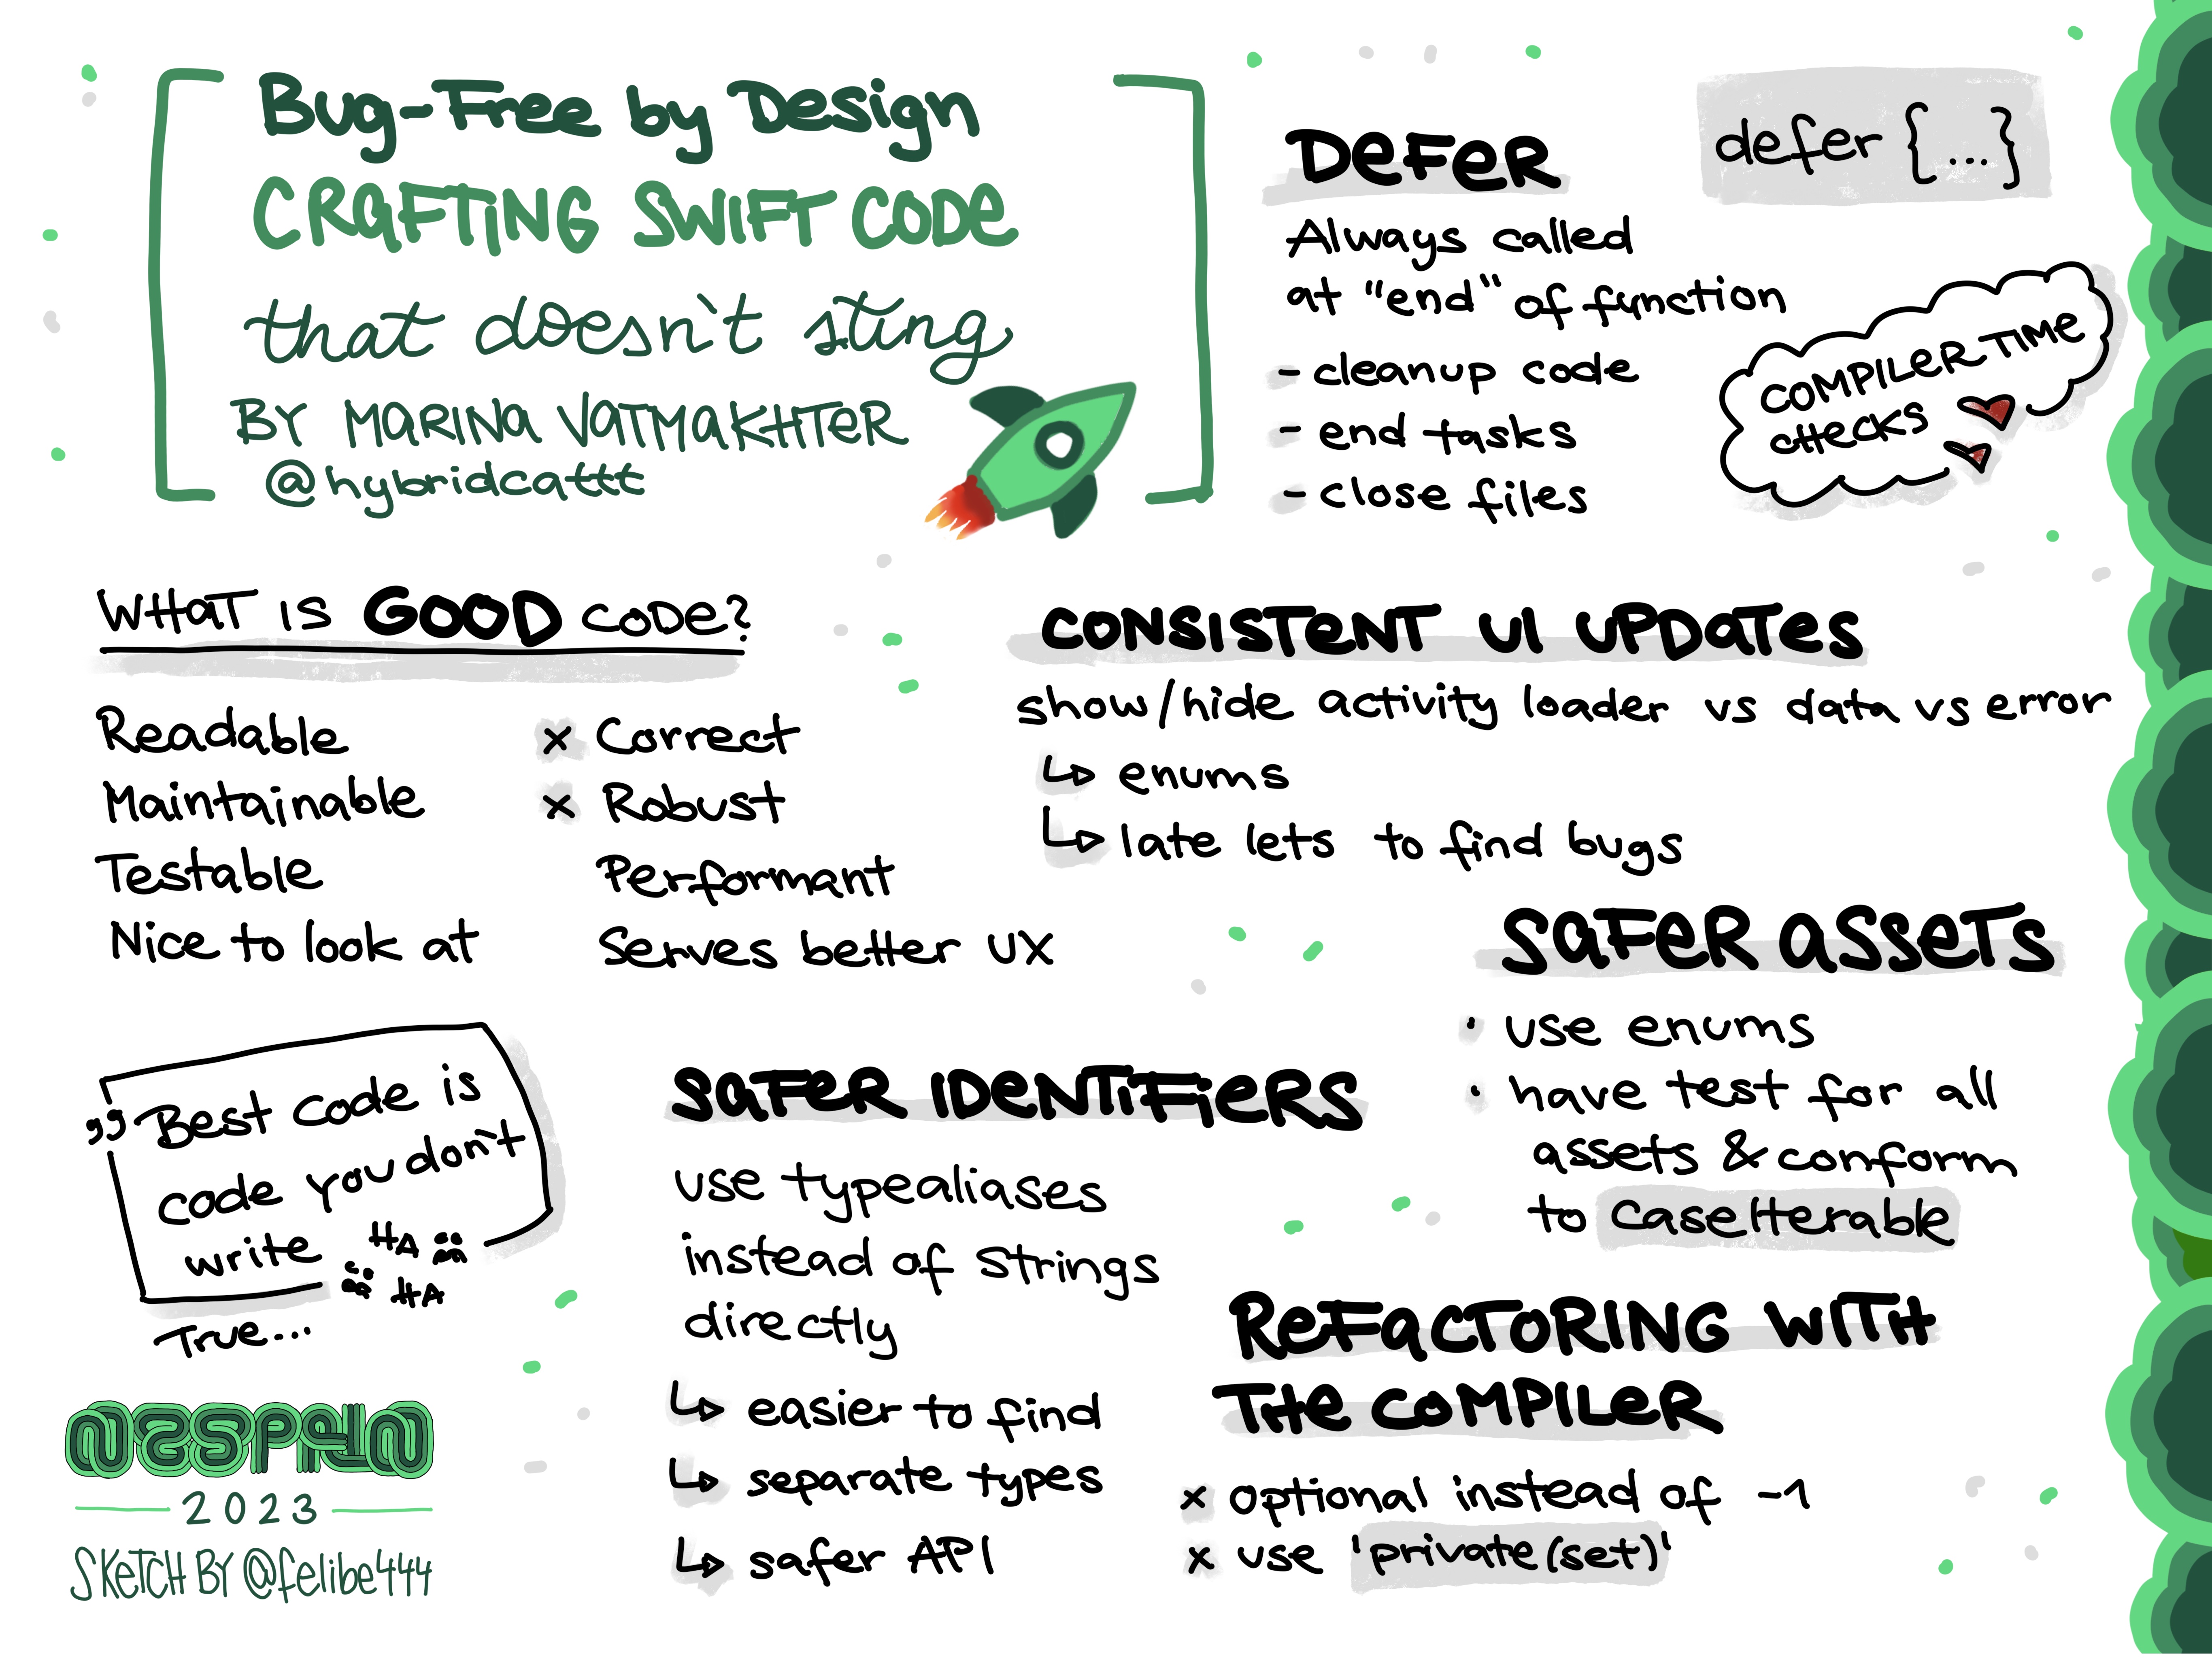 Bug-Free by Design
CRAFTING SWIFT CODE
that doesn't sting
BY MARINA VATMAKHTER
@hybridcattt
DEFER
defer {...}
Always called
at "end" of function
- cleanup code
- end tasks
- close files
COMPILER TIME
CHECKS
WHAT IS GOOD CODE?
Readable
Maintainable
Testable
Nice to look at
x Correct
x Robust
Performant
Serves better UX
CONSISTENT UI UPDATES
show/hide activity loader vs data vs error
↳ enums
↳ late lets to find bugs
SAFER ASSETS
• use enums
• have test for all
assets & conform
to CaseIterable
„Best code is
code you don't
write
HA
HA
True...
SAFER IDENTIFIERS
use typealiases
instead of Strings
directly
↳ easier to find
↳ separate types
↳ safer API
REFACTORING WITH
THE COMPILER
x optional instead of -1
x use 'private(set)'
NSSPAIN
2023
SKETCH BY @felibe444